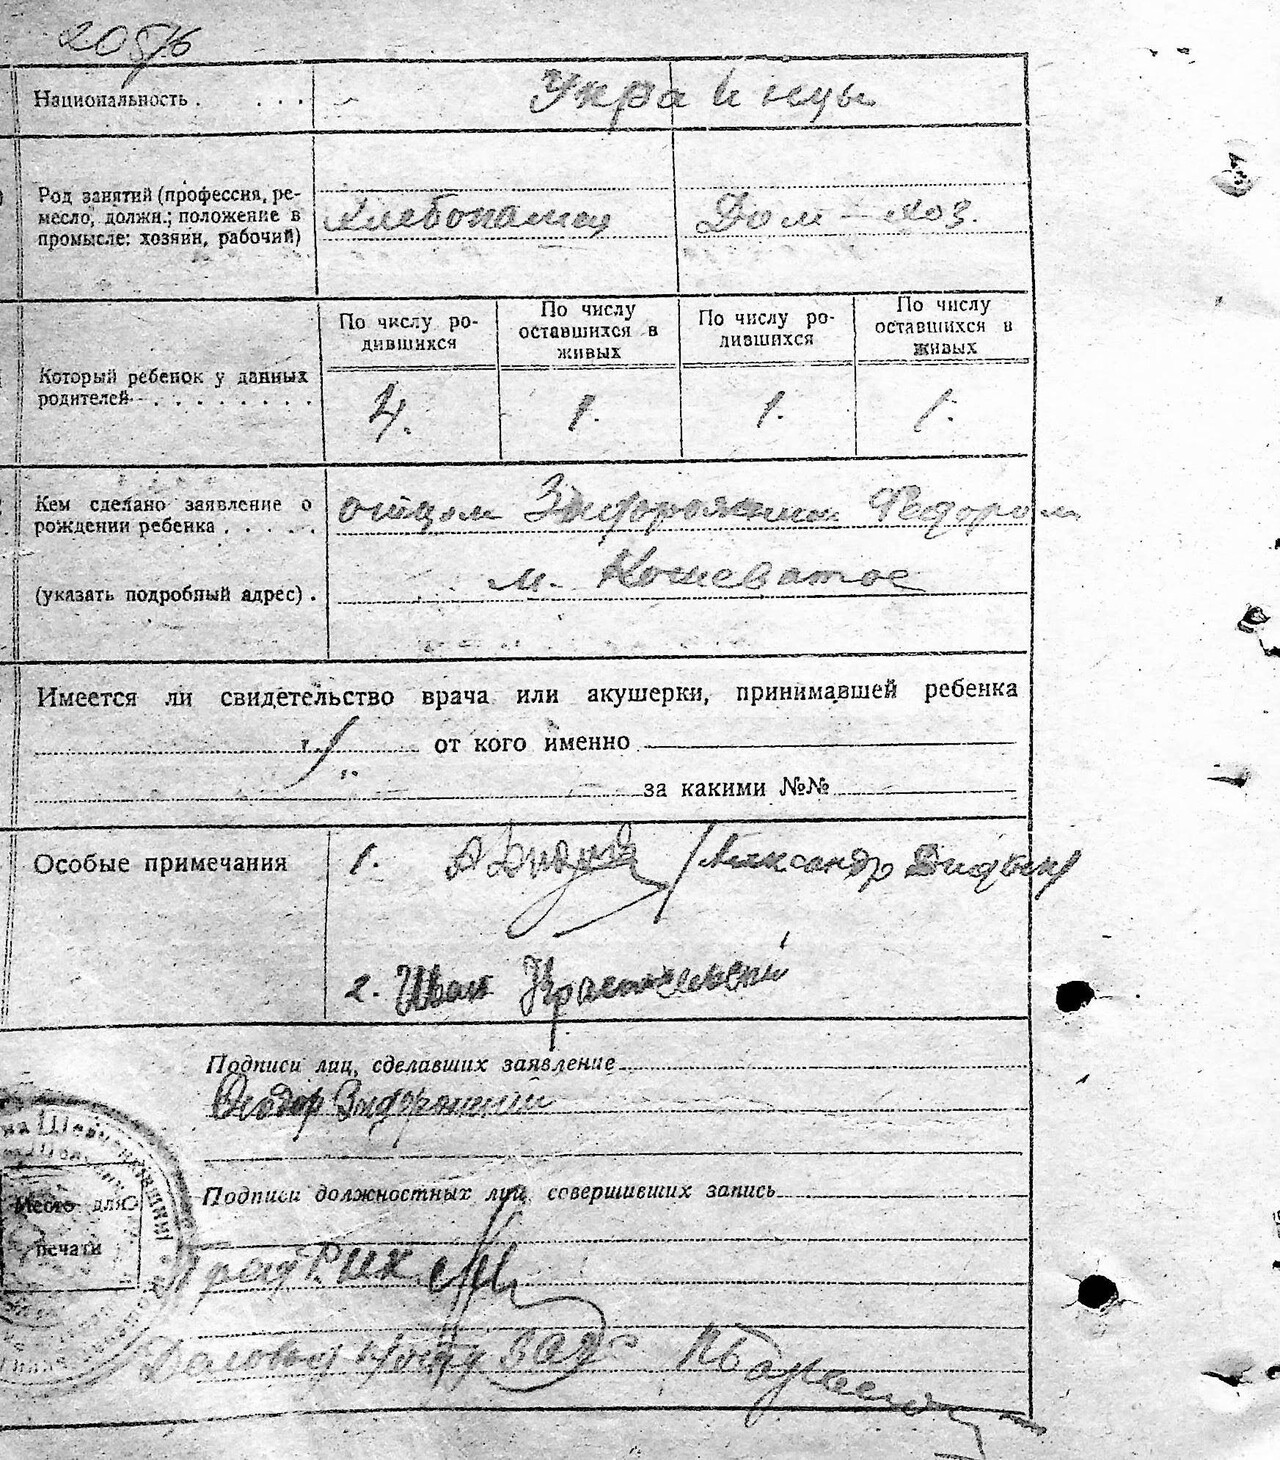 Национальность . . . .
Украинцы
Род занятий (профессия, ре-
месло, должн.; положение в
промысле: хозяин, рабочий)
Хлебопашец
Дом-хоз.
По числу ро-
дившихся
По числу
оставшихся в
живых
По числу ро-
дившихся
По числу
оставшихся в
живых
Который ребенок у данных
родителей . . . . . . . .
4.
1.
1.
1.
Кем сделано заявление о
рождении ребенка . . . . .
отцом Федором
(указать подробный адрес) .
м. Кошеватое
Имеется ли свидетельство врача или акушерки, принимавшей ребенка
г. от кого именно
за какими №№
Особые примечания
1. Александр
2. Иван
Подписи лиц, сделавших заявление
Подписи должностных лиц, совершивших запись
Место для
печати
Пред РИК